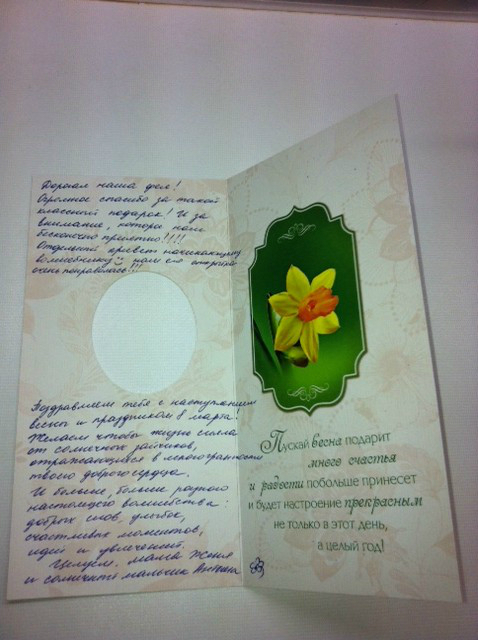 Дорогая наша фея!
Огромное спасибо за такой
классный подарок! И за
внимание, которое нам
бесконечно приятно!!!!
Отдельный привет начинающему
волшебнику нам его открытка
очень понравилась!!!
Поздравляем тебя с наступлением
весны и праздником 8 марта!
Желаем чтобы жизнь сияла
от солнечных зайчиков,
отражающихся в многогранности
твоего доброго сердца.
И больше, больше разного
настоящего волшебства:
добрых слов, улыбок,
счастливых моментов,
идей и увлечений.
Целуем. мама Женя
и солнечный мальчик
Пускай весна подарит
много счастья
и радости побольше принесет
и будет настроение прекрасным
не только в этот день,
а целый год!